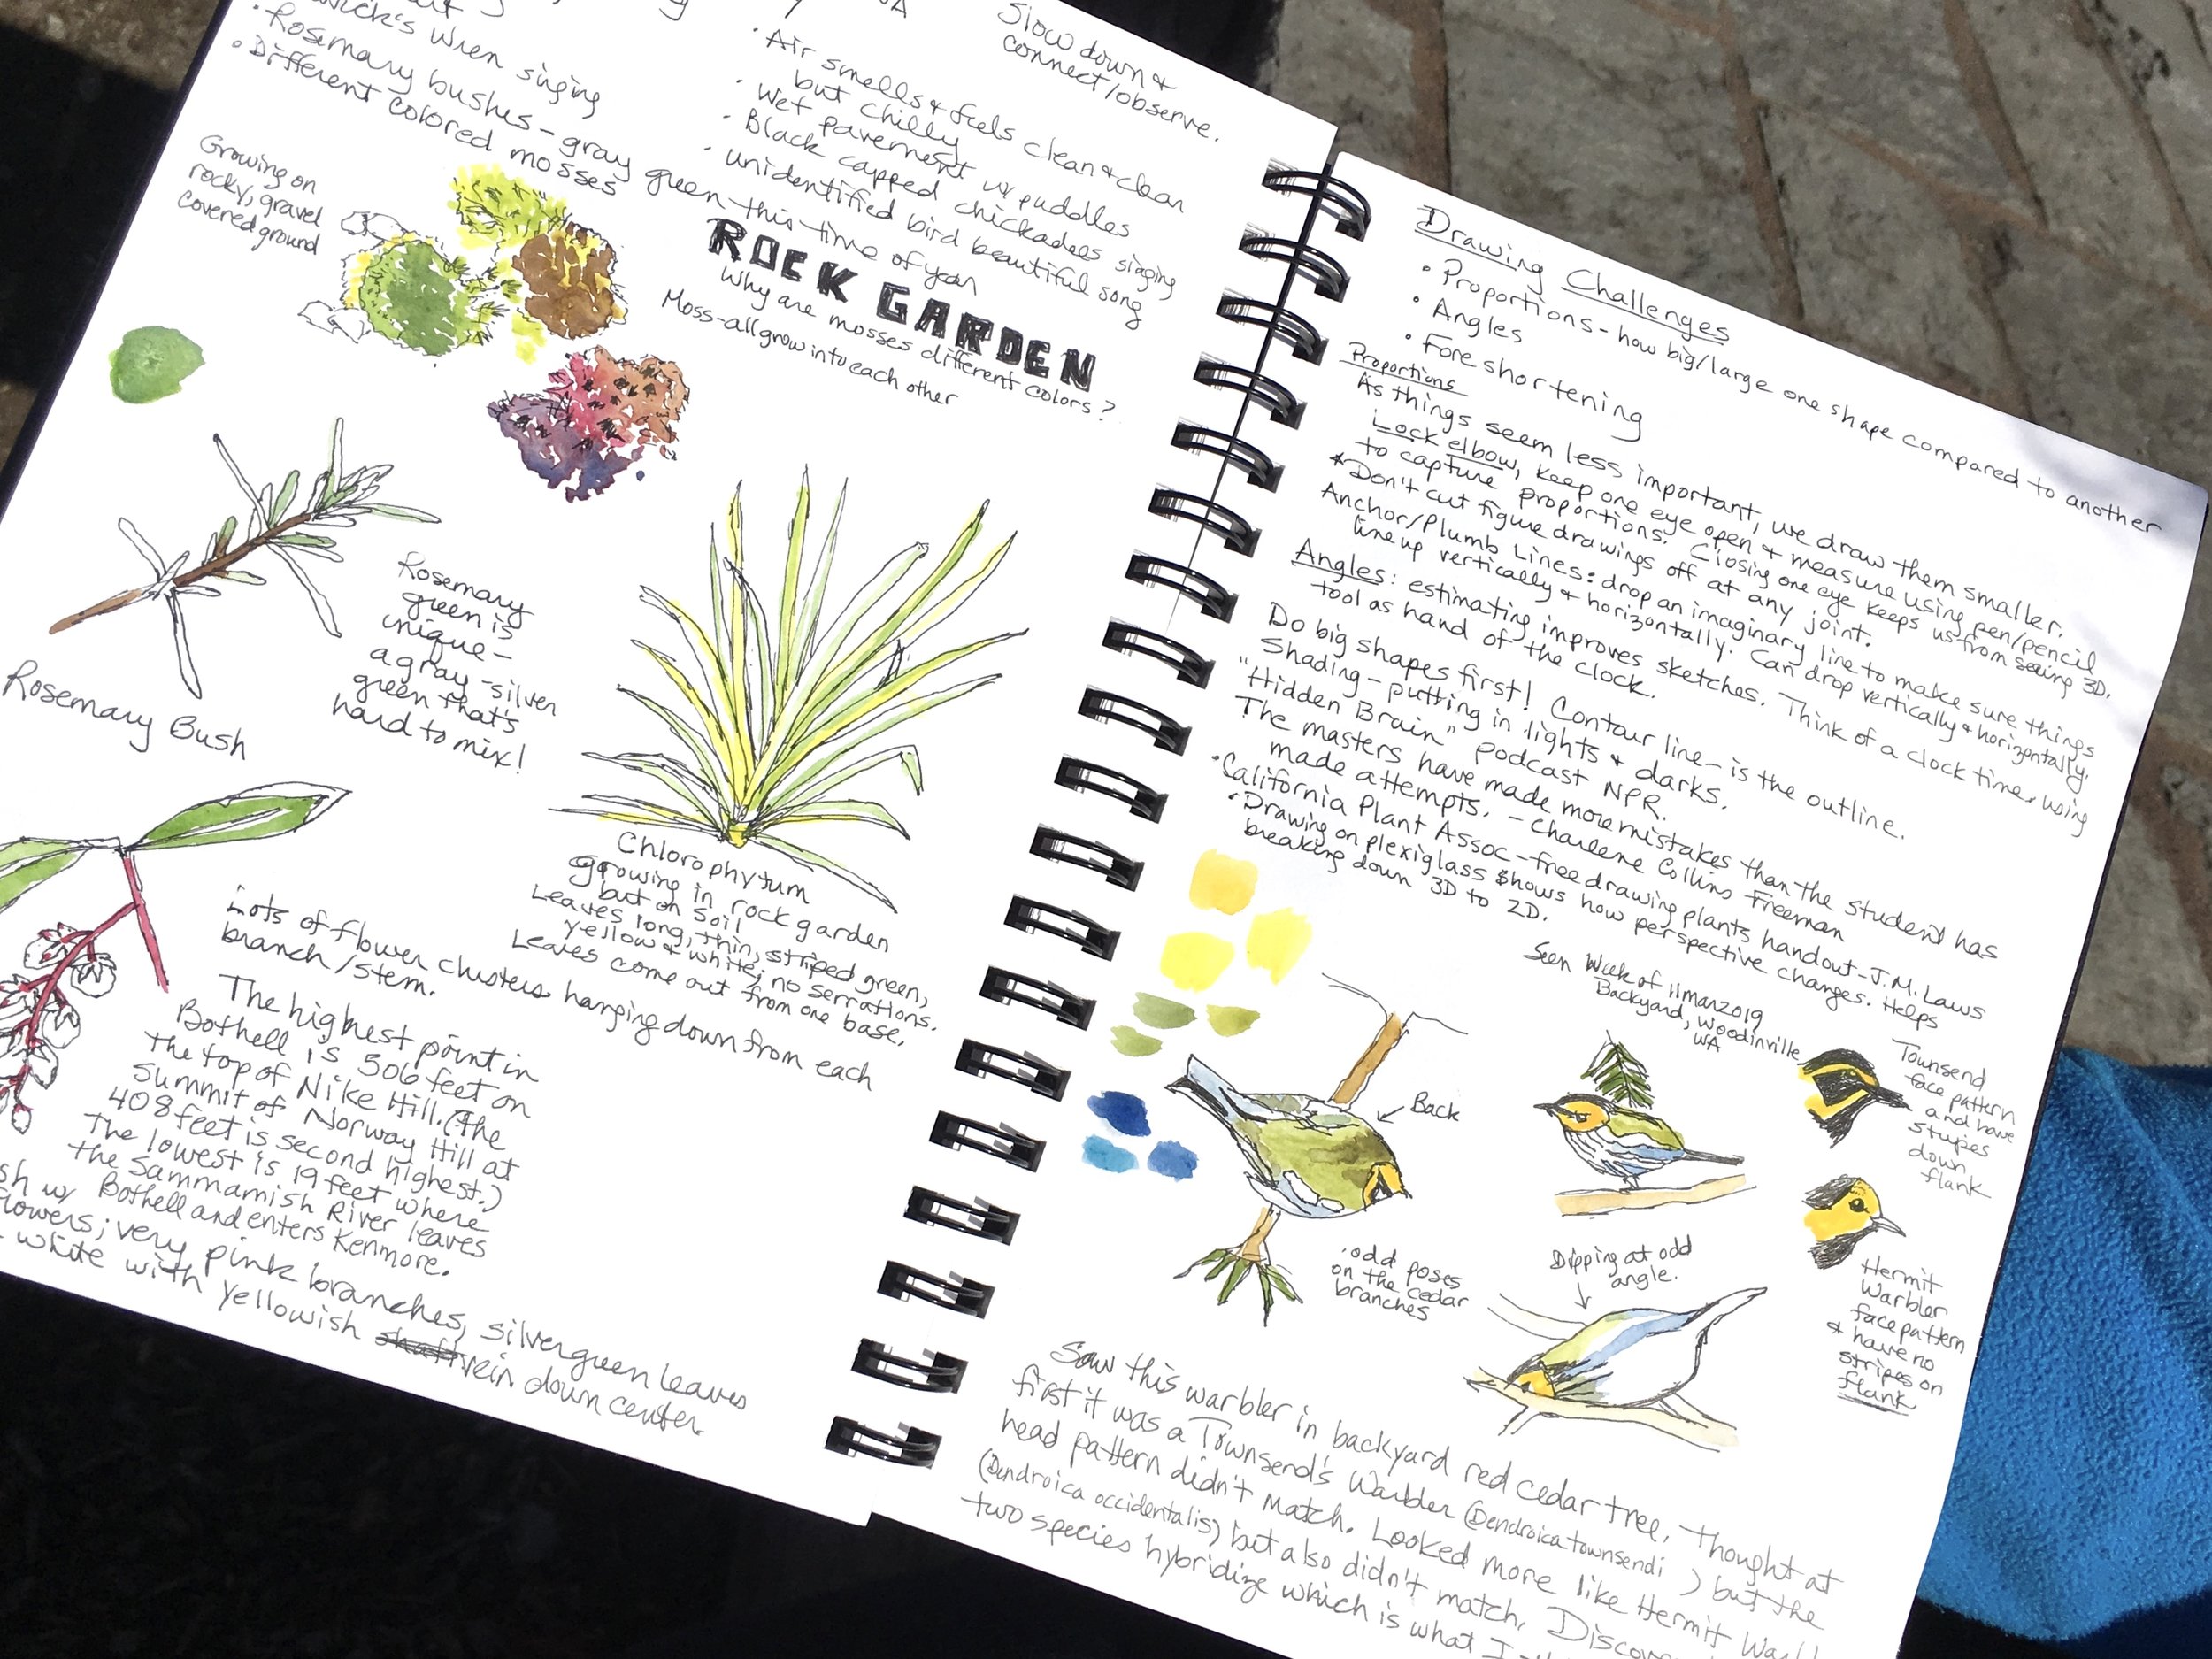 wick's wren singing
• Rosemary bushes - gray green this time of year
• Different colored mosses
Growing on
rocky, gravel
covered ground
• Air smells & feels clean & clean
but chilly
• Wet pavement w/ puddles
• Black capped chickadees singing
• unidentified bird beautiful song
Slow down &
connect/observe.
ROCK GARDEN
Why are mosses different colors?
Moss-all grow into each other
Rosemary
green is
unique -
a gray-silver
green that's
hard to mix!
Rosemary Bush
Chlorophytum
growing in rock garden
but on soil
Leaves long, thin, striped green,
yellow & white; no serrations.
Leaves come out from one base.
Lots of flower clusters hanging down from each
branch/stem.
The highest point in
Bothell is 506 feet on
the top of Nike Hill. (The
summit of Norway Hill at
408 feet is second highest.)
The lowest is 19 feet where
the Sammamish River leaves
Bothell and enters Kenmore.
sh w/
flowers; very pink branches, silvergreen leaves
white with yellowish vein down center
Drawing Challenges
• Proportions - how big/large one shape compared to another
• Angles
• Foreshortening
Proportions
As things seem less important, we draw them smaller.
Lock elbow, keep one eye open & measure using pen/pencil
to capture proportions. Closing one eye keeps us from seeing 3D.
*Don't cut figure drawings off at any joint.
Anchor/Plumb Lines: drop an imaginary line to make sure things
line up vertically & horizontally. Can drop vertically & horizontally.
Angles: estimating improves sketches. Think of a clock time, using
tool as hand of the clock.
Do big shapes first! Contour line - is the outline.
Shading - putting in lights & darks.
"Hidden Brain" podcast NPR.
The masters have made more mistakes than the student has
made attempts. - Charlene Collins Freeman
• California Plant Assoc - free drawing plants handout - J.M. Laws
• Drawing on plexiglass shows how perspective changes. Helps
breaking down 3D to 2D.
Seen Week of 11Mar2019
Backyard, Woodinville,
WA
Back
Townsend
face pattern
and have
stripes
down
flank
• odd poses
on the cedar
branches
Dipping at odd
angle.
Hermit
Warbler
face pattern
& have no
stripes on
flank
Saw this warbler in backyard red cedar tree. Thought at
first it was a Townsend's Warbler (Dendroica townsendi) but the
head pattern didn't match. Looked more like Hermit
(Dendroica occidentalis) but also didn't match.
two species hybridize which is what I